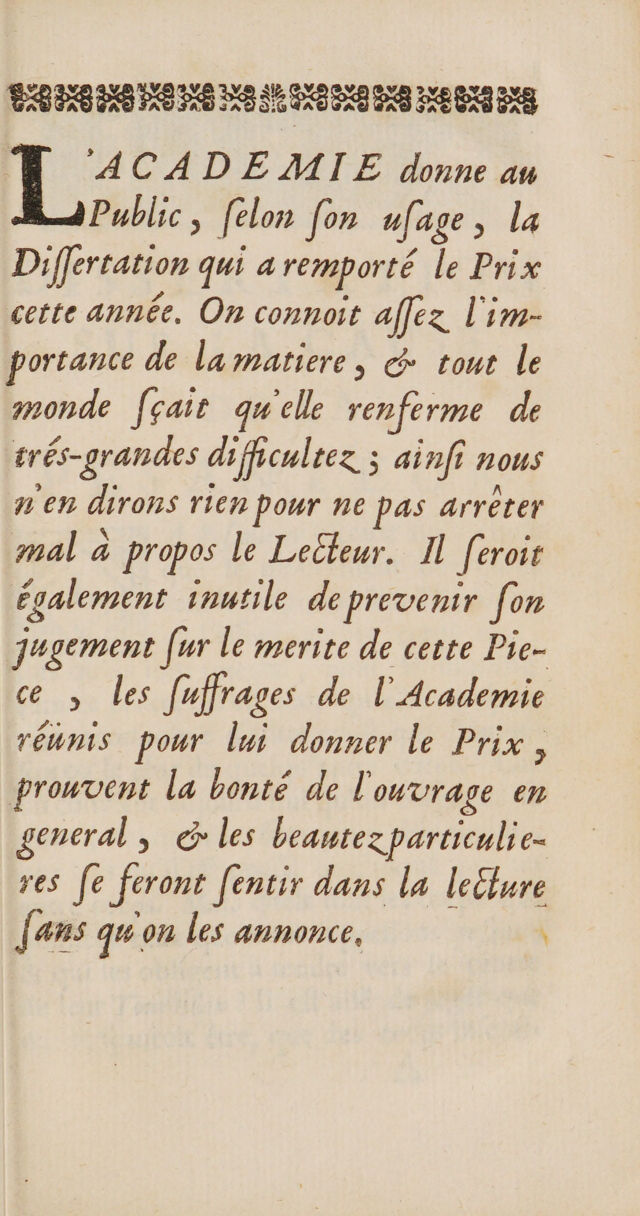 L'ACADEMIE donne au
Public, ſelon ſon uſage, la
Diſſertation qui a remporté le Prix
cette année. On connoit aſſez l'im-
portance de la matiere, & tout le
monde ſçait qu'elle renferme de
trés-grandes difficultez ; ainſi nous
n'en dirons rien pour ne pas arrêter
mal à propos le Lecteur. Il ſeroit
également inutile de prevenir ſon
jugement ſur le merite de cette Pie-
ce , les ſuffrages de l'Academie
réünis pour lui donner le Prix ,
prouvent la bonté de l'ouvrage en
general , & les beautez particulie-
res ſe feront ſentir dans la lecture
ſans qu'on les annonce.